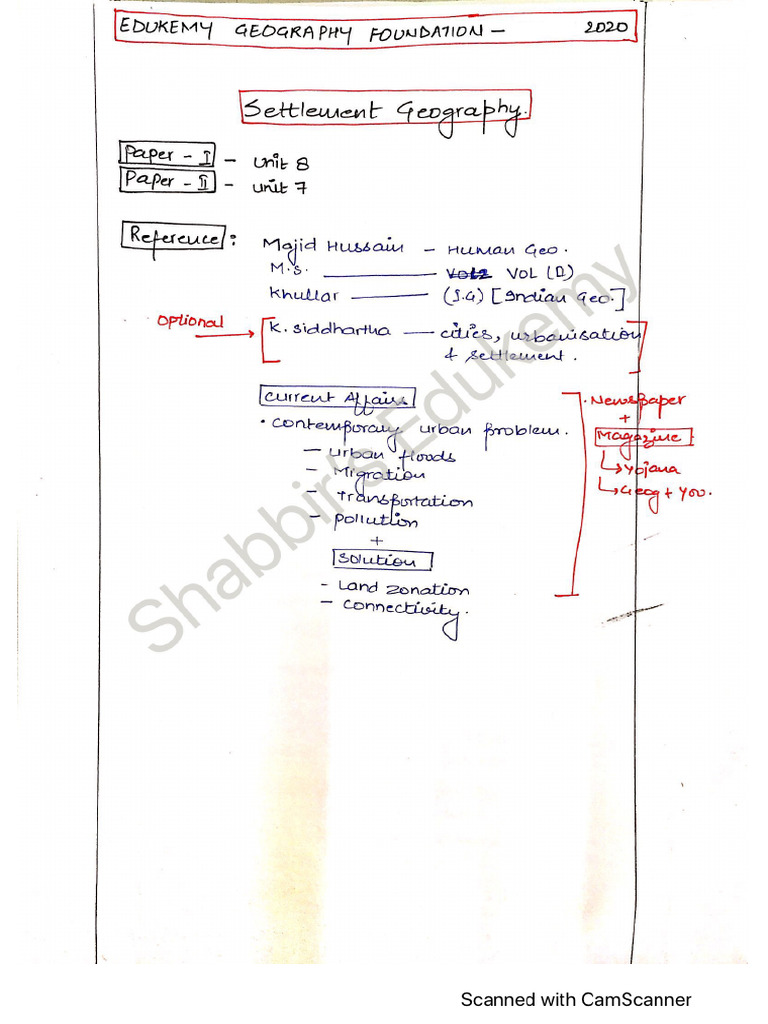 EDUKEMY GEOGRAPHY FOUNDATION - 2020
Settlement Geography.
Paper - I - Unit 8
Paper - II - Unit 7
Reference :
Majid Hussain - Human Geo.
M.S. ——— VOL (II)
Khullar ——— (I.G) [Indian Geo.]
Optional → K. Siddhartha — cities, urbanisation
& settlement.
Current Affairs
• Contemporary urban problem.
- urban floods
- Migration
- Transportation
- pollution
+
Solution
- Land zonation
- connectivity.
• Newspaper
+
Magazine
↳ Yojana
↳ Geog + You.
Shabbir's Edukemy
Scanned with CamScanner